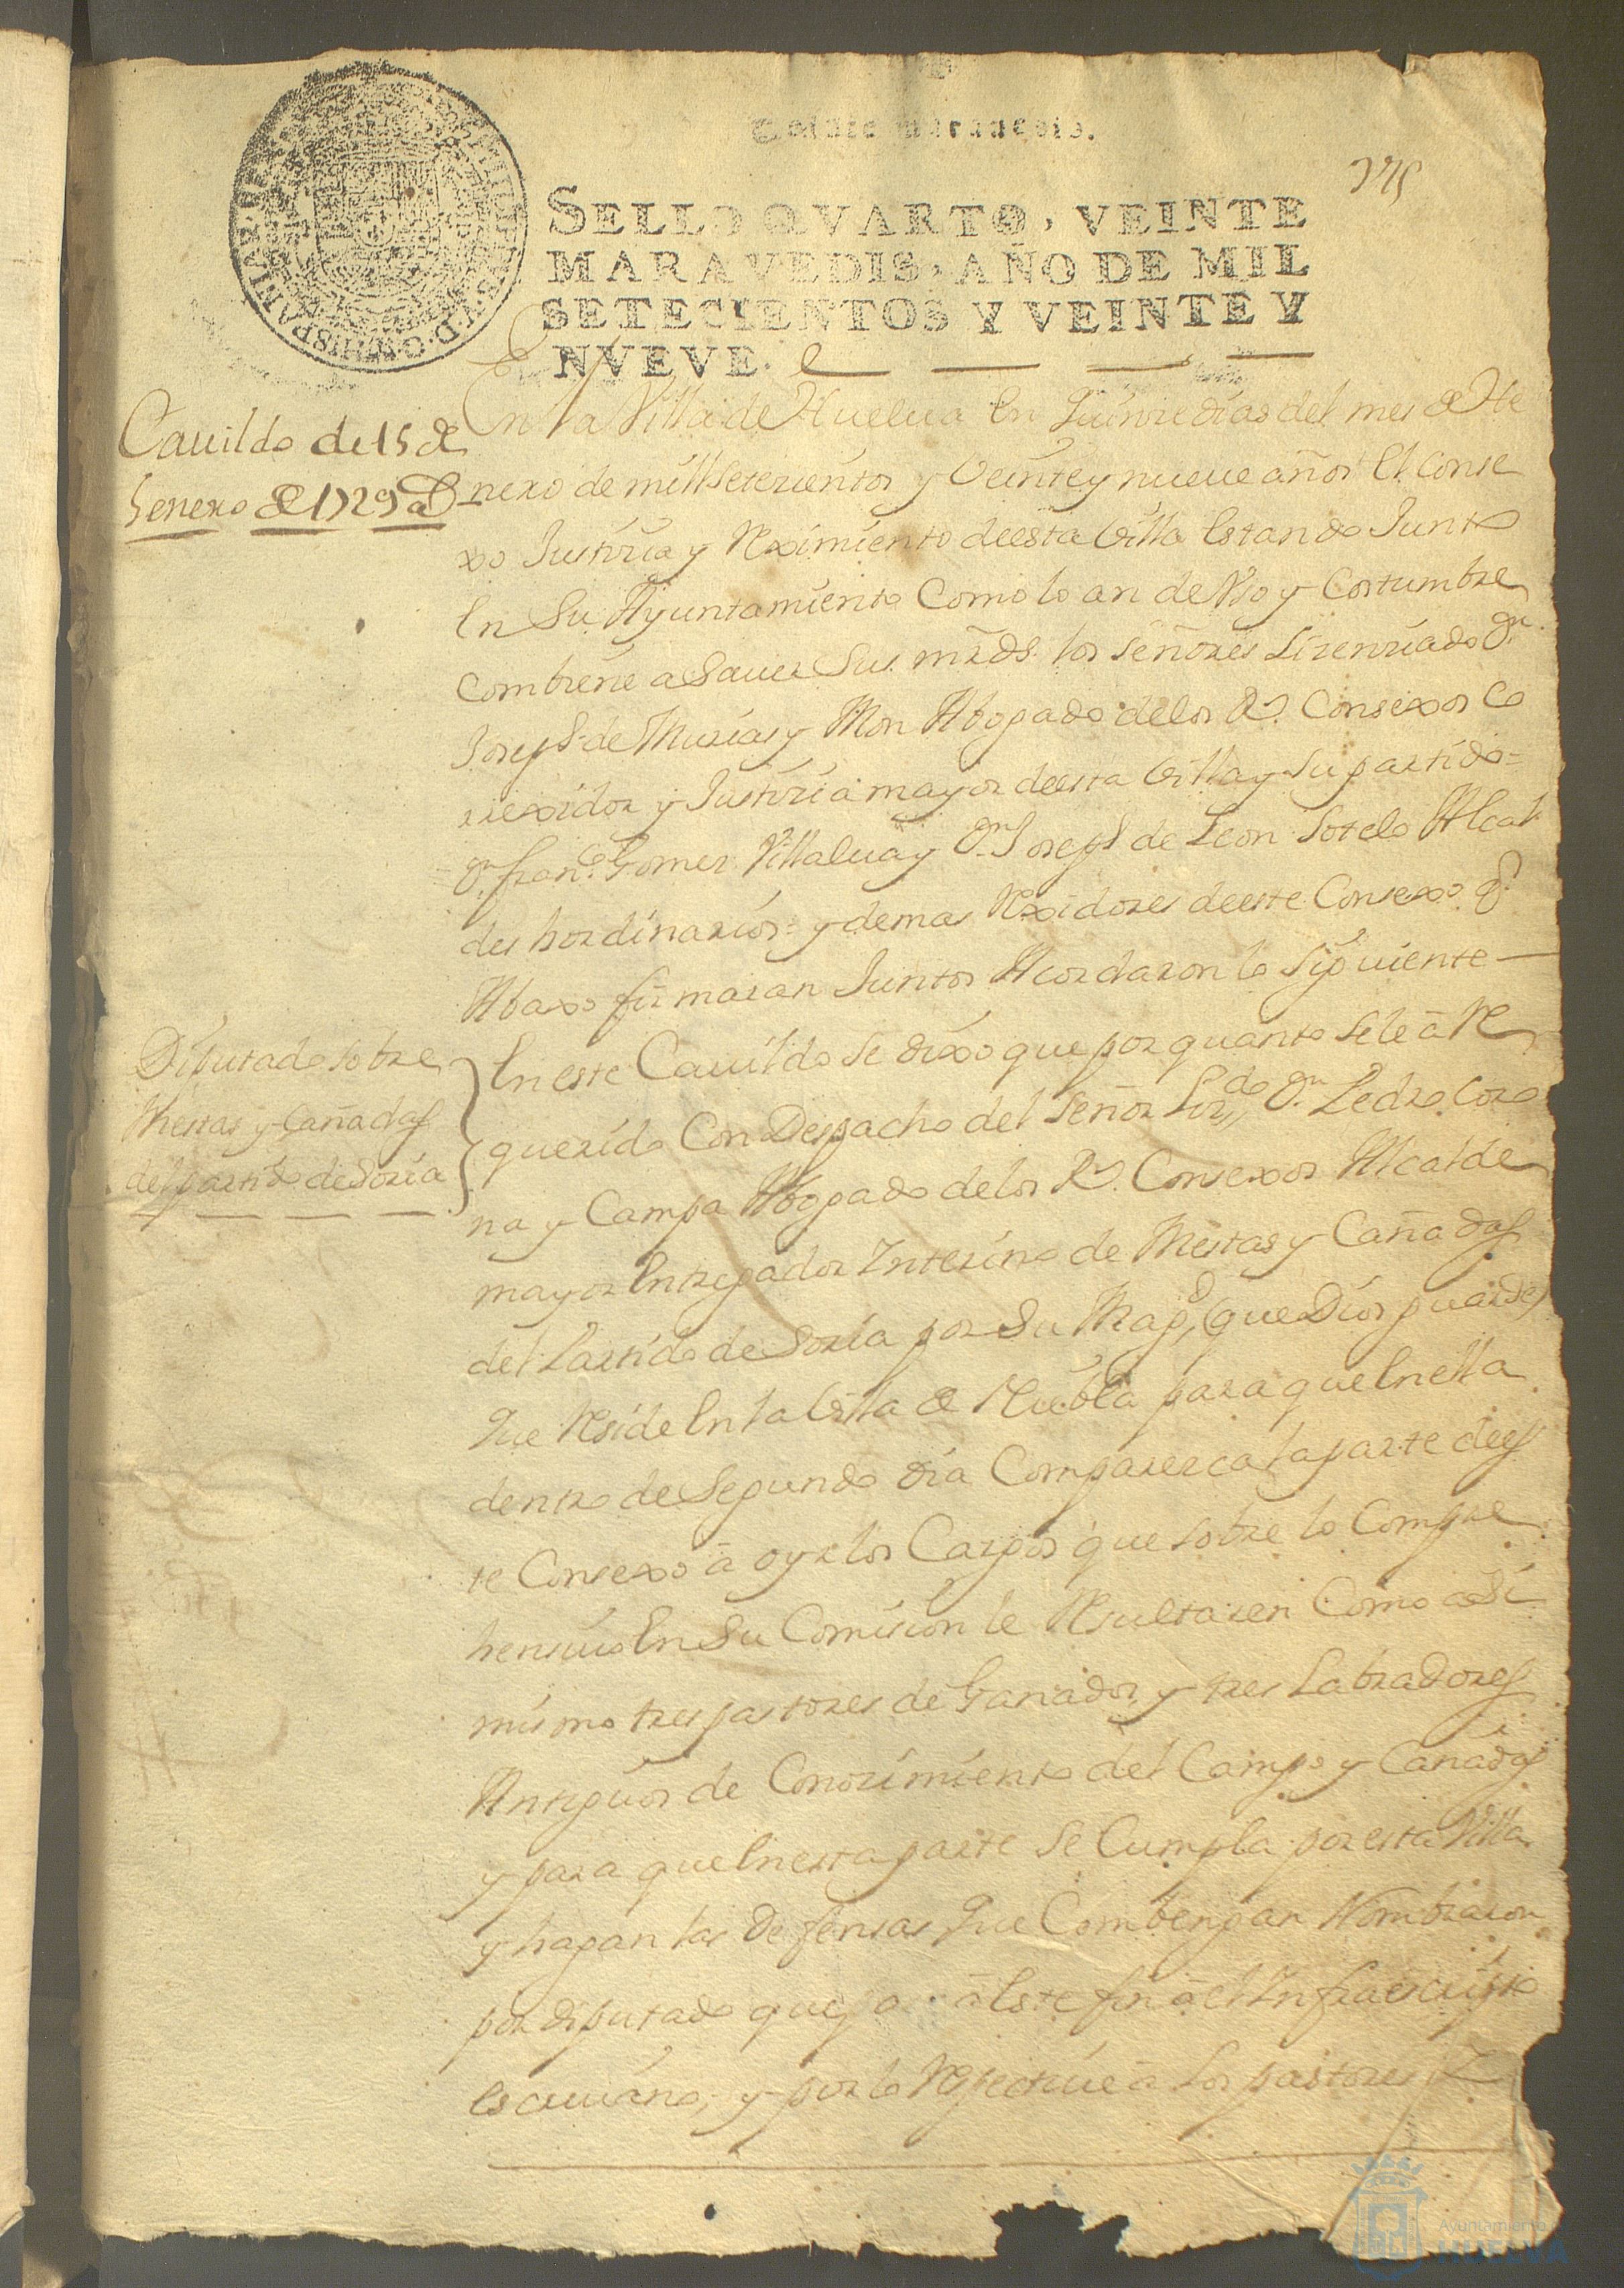 Veinte maravedis.
SELLO QVARTO, VEINTE
MARAVEDIS, AÑO DE MIL
SETECIENTOS Y VEINTE Y
NVEVE.
Cauildo de 15 de
Henero de 1729 as
En la Villa de Huelua en Quinze dias del mes de He
nero de mill setezientos y Veinte y nueue años El Conse
xo Justizia y Reximiento deesta Villa estando Junto
en Su Ayuntamiento Como lo an de Vso y Costumbre
Combiene a Sauer Sus mrds. los señores Lizenziado Dn.
Joseph de Murias y Mon Abogado de los Rs. Consexos Co
rrexidor y Justizia mayor deesta Villa y su partido =
Dn. Franco. Gomez Villalua y Dn. Joseph de Leon Sotelo Alcal
des hordinarios = y demas Rexidores deeste Consexo q
Abaxo firmaran Juntos Acordaron lo Siguiente
Diputado sobre
Mestas y Cañadas
del partido de Soria
En este Cauildo se dixo que por quanto se le á Re
querido Con Despacho del Señor Lizdo. Dn. Pedro Coro
na y Campa Abogado de los Rs. Consexos Alcalde
mayor Entregador Interino de Mestas y Cañadas
del Partido de Soria por Su Magd. (que Dios guarde)
Que Reside en la Villa de Niebla para que en ella
dentro de Segundo dia Comparezca la parte dees
te Consexo á oyr los Cargos que sobre lo Compre
hensiuo en Su Comision le Resultaren Como asi
mismo tres pastores de Ganados y tres Labradores
Antiguos de Conozimiento del Campo y Cañadas
y para que en esta parte Se Cumpla por esta Villa
y hagan las Defensas que Combengan Nombraron
por diputado que pa á este fin á el Infraescripto
escriuano, y por lo Respectiue á Los pastores y L
Ayuntamiento
HUELVA